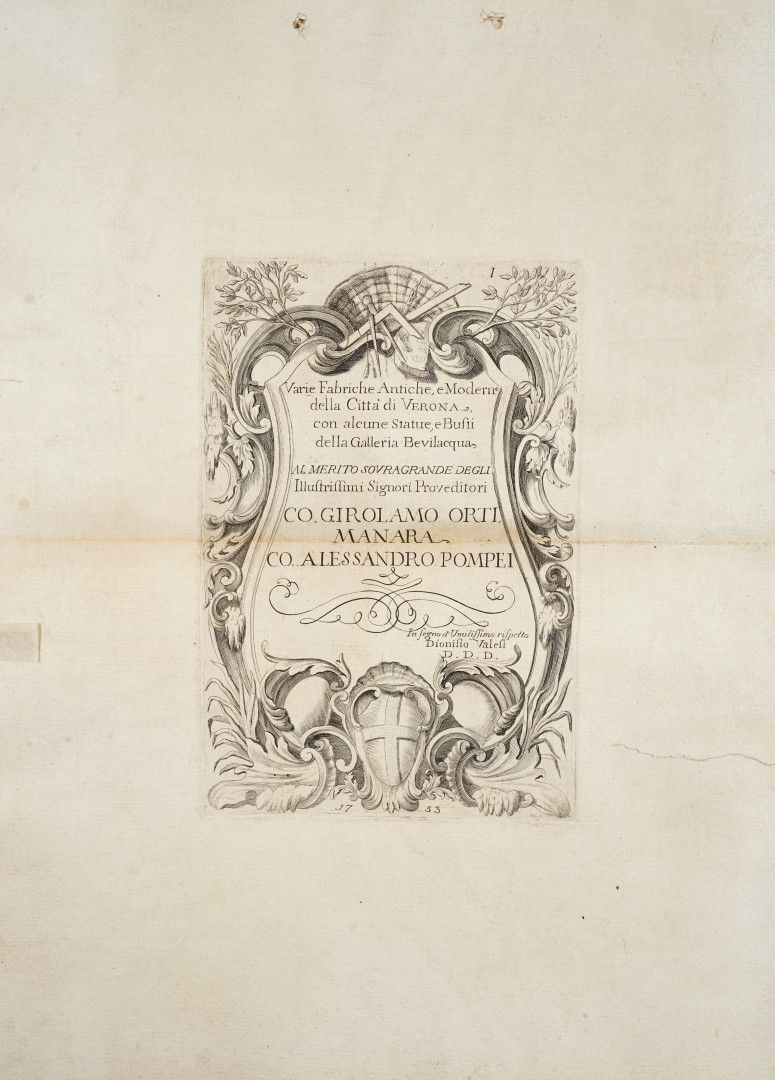 I
Varie Fabriche Antiche, e Moderne
della Città di VERONA,
con alcune Statue, e Busti
della Galleria Bevilacqua,
AL MERITO SOVRAGRANDE DEGLI
Illustrissimi Signori Proveditori
CO. GIROLAMO ORTI.
MANARA
CO. ALESSANDRO POMPEI
In segno d'Umilissimo rispetto
Dionisio Valesi
D. D. D.
17 53